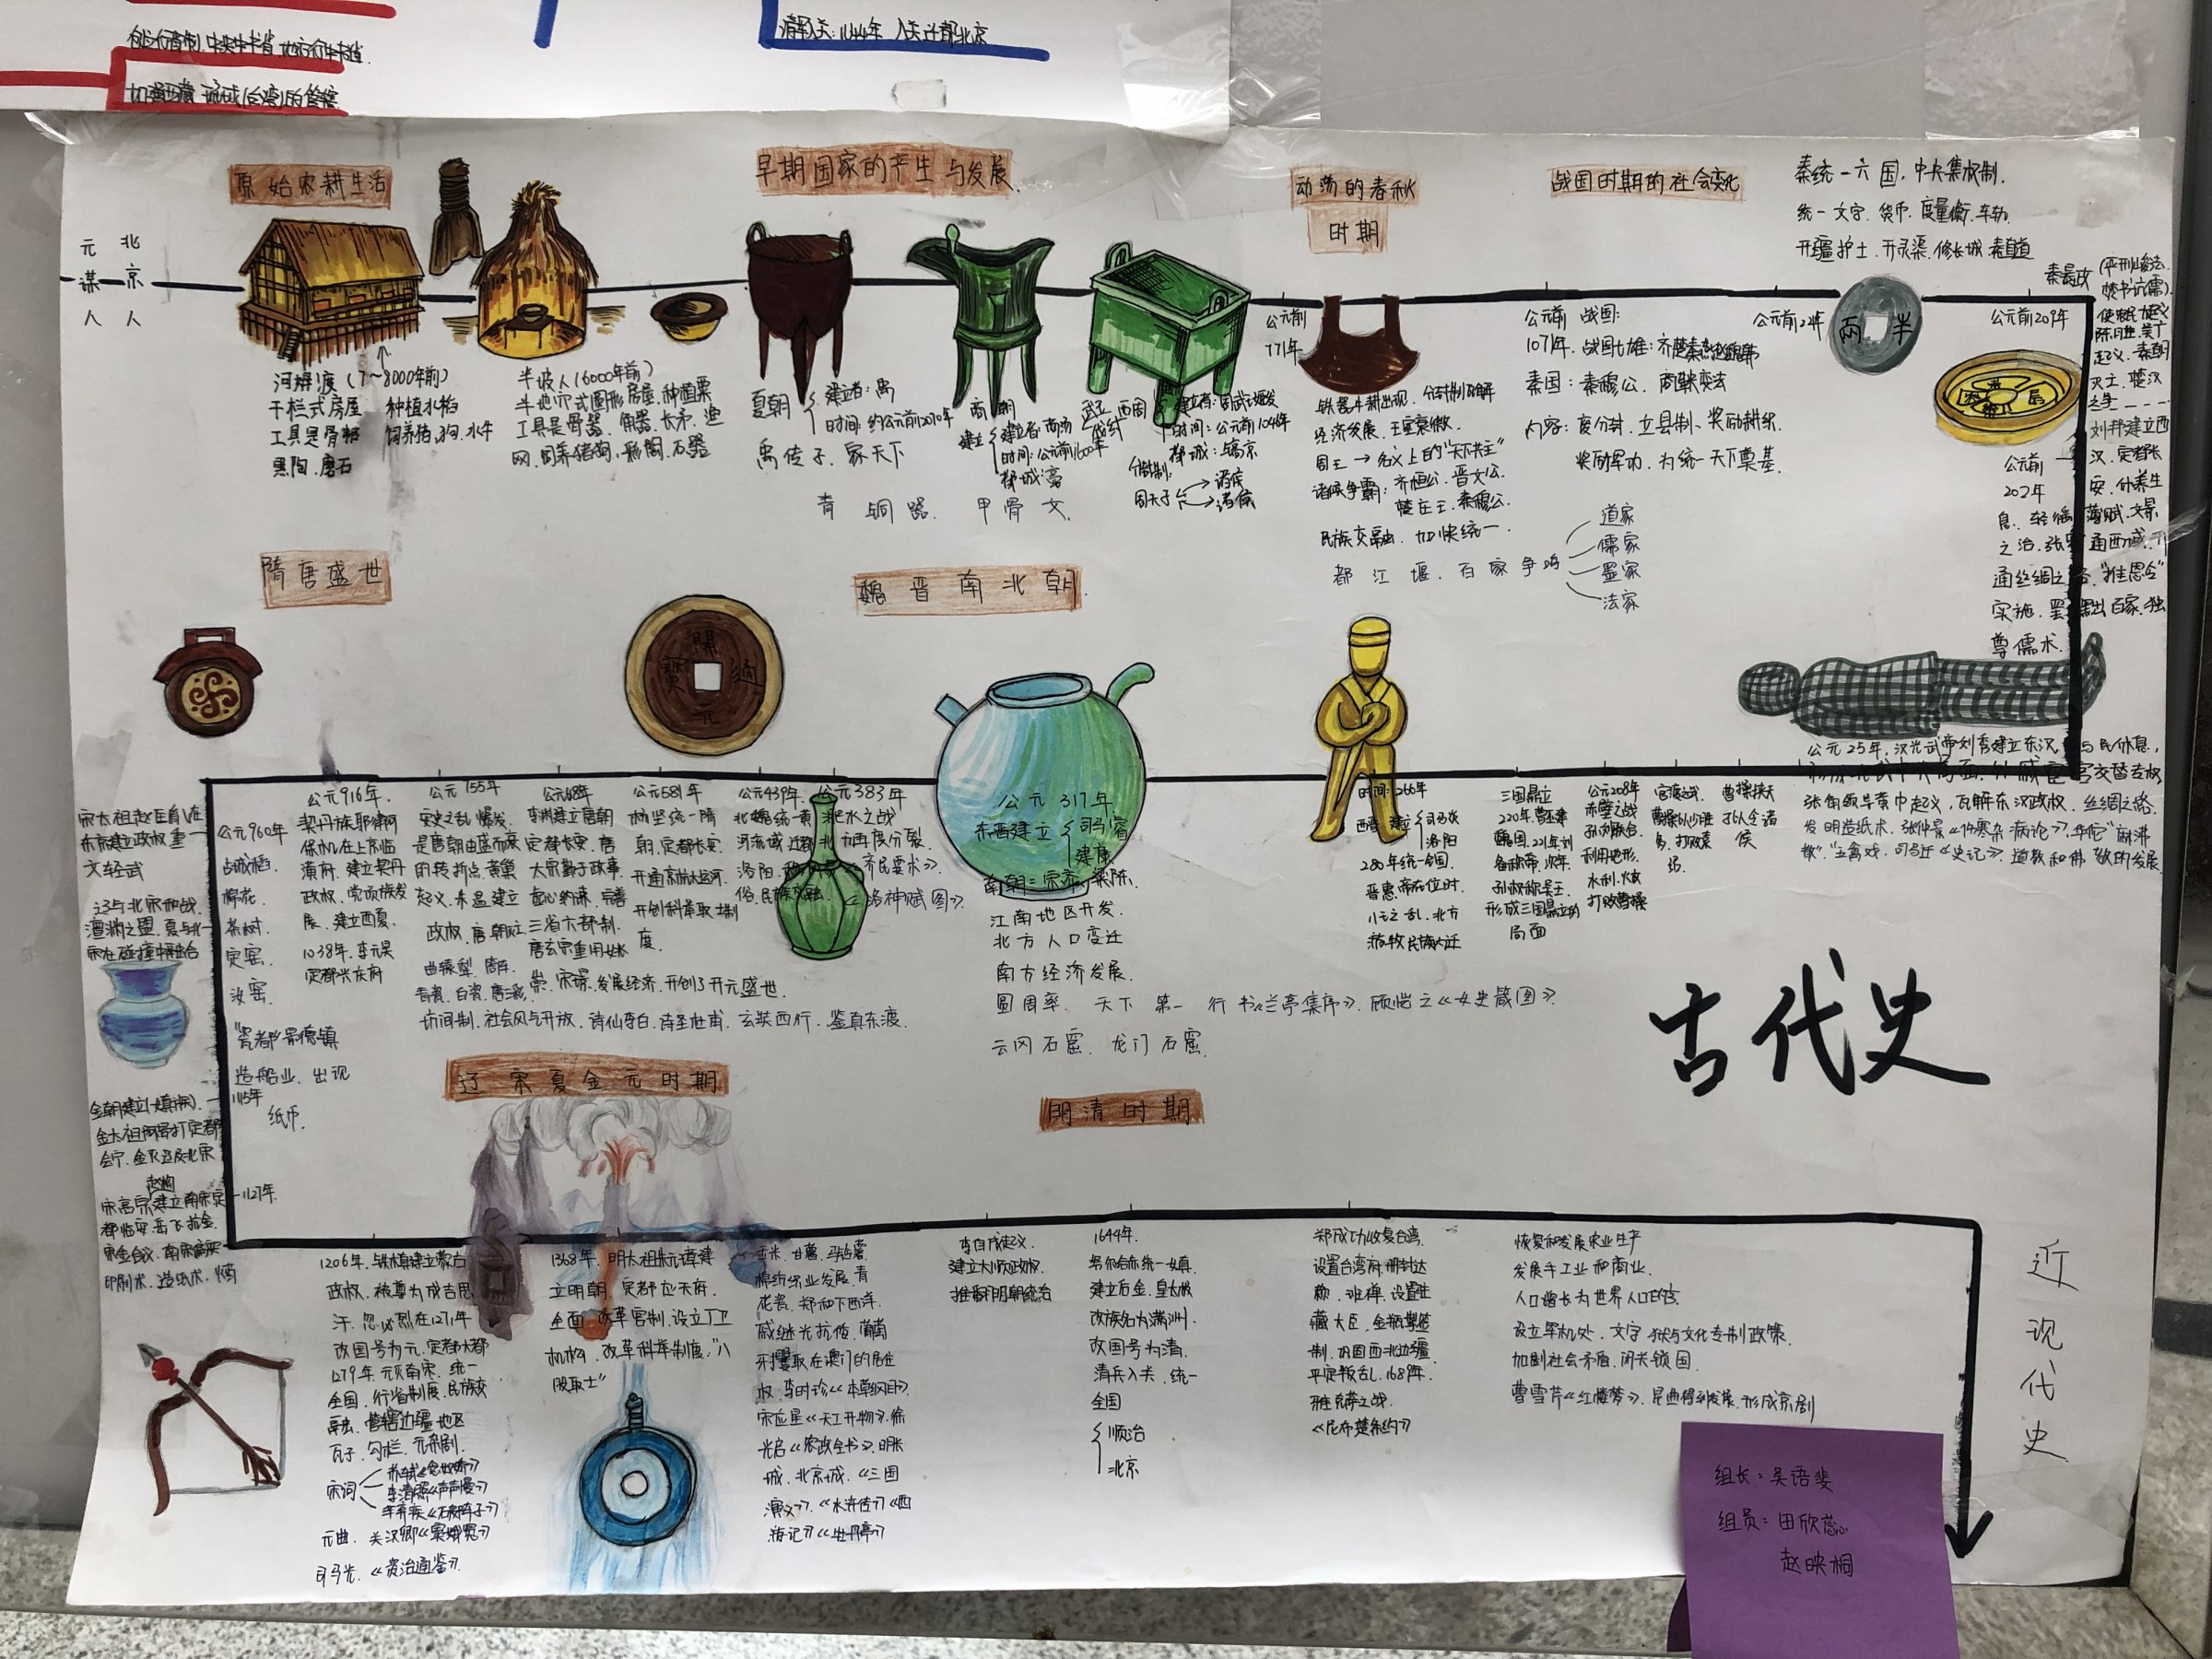 创立行省制,中央中书省,地方行中书省.
加强西藏、琉球(台湾)的管辖
清军入关:1644年 入关迁都北京
原始农耕生活
早期国家的产生与发展.
动荡的春秋
时期
战国时期的社会变化
秦统一六国,中央集权制.
统一文字.货币.度量衡.车轨.
开疆护土.开灵渠.修长城.秦直道
元谋人
北京人
河姆渡(7~8000年前)
干栏式房屋 种植水稻
工具是骨耜 饲养猪、狗、水牛
黑陶.磨石
半坡人(6000年前)
半地穴式圆形房屋,种植粟
工具是骨器、角器、长矛、渔
网.饲养猪狗,彩陶.石器
夏朝
建立者:禹
时间:约公元前2070年
禹传子,家天下
商朝
建立
建立者:商汤
时间:公元前1600年
都城:亳
武王伐纣
西周
时间:公元前1046年
都城:镐京
分封制:
周天子
诸侯
诸侯
青铜器.甲骨文.
公元前
771年
铁器牛耕出现.分封制瓦解
经济发展.王室衰微.
周王→名义上的"天下共主"
诸侯争霸:齐桓公.晋文公.
楚庄王.秦穆公.
民族交融,加快统一.
都江堰.百家争鸣
道家
儒家
墨家
法家
公元前 战国:
秦国:秦穆公.商鞅变法
内容:废分封,立县制、奖励耕织.
奖励军功,为统一天下奠基.
半两
公元前209年
公元前
202年
刘邦建立西
汉.定都长
安,休养生
息.轻徭薄赋.文景
之治.张骞通西域.开
通丝绸之路."推恩令"
实施.罢黜百家.独
尊儒术.
隋唐盛世
魏晋南北朝
開元通寶
公元25年,汉光武帝刘秀建立东汉,与民休息,
张角领导黄巾起义,瓦解东汉政权.丝绸之路.
发明造纸术.张仲景《伤寒杂病论》,华佗"麻沸
散"."五禽戏.司马迁《史记》.道教和佛教的发展.
曹操挟天
子以令诸
侯
公元208年
赤壁之战
孙刘联合.
利用地形.
水利.火攻
打败曹操
三国鼎立
形成三国鼎立的
局面
时间:266年
西晋 建立
司马炎
洛阳
280年统一全国.
晋惠帝在位时.
八王之乱.北方
游牧民族内迁
公元317年
东晋建立
司马睿
建康
南朝:宋.齐.梁.陈.
江南地区开发.
北方人口变迁
南方经济发展.
圆周率.天下第一行书《兰亭集序》.顾恺之《女史箴图》.
云冈石窟.龙门石窟.
公元383年
淝水之战
北方再度分裂.
《齐民要术》.
《洛神赋图》.
公元439年.
北魏统一黄
河流域.迁都
洛阳.
俗.民族交融.
公元581年
杨坚统一隋
朝.定都长安.
开通京杭大运河.
开创科举取士制
度.
公元618年
李渊建立唐朝
定都长安.唐
太宗勤于政事.
虚心纳谏.完善
三省六部制.
唐玄宗重用姚
崇、宋璟.发展经济.开创了开元盛世.
公元755年
安史之乱爆发.
是唐朝由盛而衰
的转折点.黄巢
起义.朱温建立
政权,唐朝亡.
曲辕犁.筒车.
青瓷.白瓷.唐三彩.
坊间制.社会风气开放.诗仙李白.诗圣杜甫.玄奘西行.鉴真东渡.
公元916年.
契丹族耶律阿
保机在上京临
潢府.建立契丹
政权.党项族发
展.建立西夏.
1038年.李元昊
定都兴庆府
公元960年
占城稻.
棉花.
茶树.
定窑.
汝窑.
"瓷都"景德镇
造船业.出现
纸币.
宋太祖赵匡胤在
东京建立政权重
文轻武
辽与北宋和战.
澶渊之盟.夏与北
宋在碰撞中融合
1115年
金朝建立(女真族).
金太祖阿骨打定都
会宁.金灭辽及北宋
赵构
宋高宗建立南宋定
都临安.岳飞抗金.
宋金合议.
印刷术.造纸术.
1127年.
辽宋夏金元时期
明清时期
古代史
1206年.铁木真建立蒙古
政权.被尊为成吉思
汗.忽必烈在1271年
改国号为元.定都大都
1279年.元灭南宋.统一
全国.行省制度.民族交
融.管辖边疆地区
瓦子.勾栏.元杂剧.
宋词
苏轼《念奴娇》
李清照《声声慢》
辛弃疾《破阵子》
元曲.关汉卿《窦娥冤》
司马光.《资治通鉴》.
1368年.明太祖朱元璋建
立明朝.定都应天府.
全面改革官制.设立厂卫
机构.改革科举制度."八
股取士"
玉米.甘薯.马铃薯.
棉纺织业发展.青
花瓷.郑和下西洋.
戚继光抗倭.葡萄
牙攫取在澳门的居住
权.李时珍《本草纲目》.
宋应星《天工开物》.徐
光启《农政全书》.明长
城.北京城.《三国
演义》.《水浒传》《西
游记》《牡丹亭》
李自成起义.
建立大顺政权.
推翻明朝统治
1644年.
努尔哈赤统一女真.
建立后金.皇太极
改族名为满洲.
改国号为清.
清兵入关.统一
全国
顺治
北京
郑成功收复台湾.
设置台湾府.册封达
赖.班禅.设置驻
藏大臣.金瓶掣签
制.巩固西北边疆
平定叛乱.1689年.
雅克萨之战.
《尼布楚条约》
恢复和发展农业生产
发展手工业和商业.
设立军机处.文字狱与文化专制政策.
加剧社会矛盾.闭关锁国.
曹雪芹《红楼梦》.昆曲得到发展.形成京剧
近现代史
组长:吴语斐
组员:田欣蕊
赵映桐